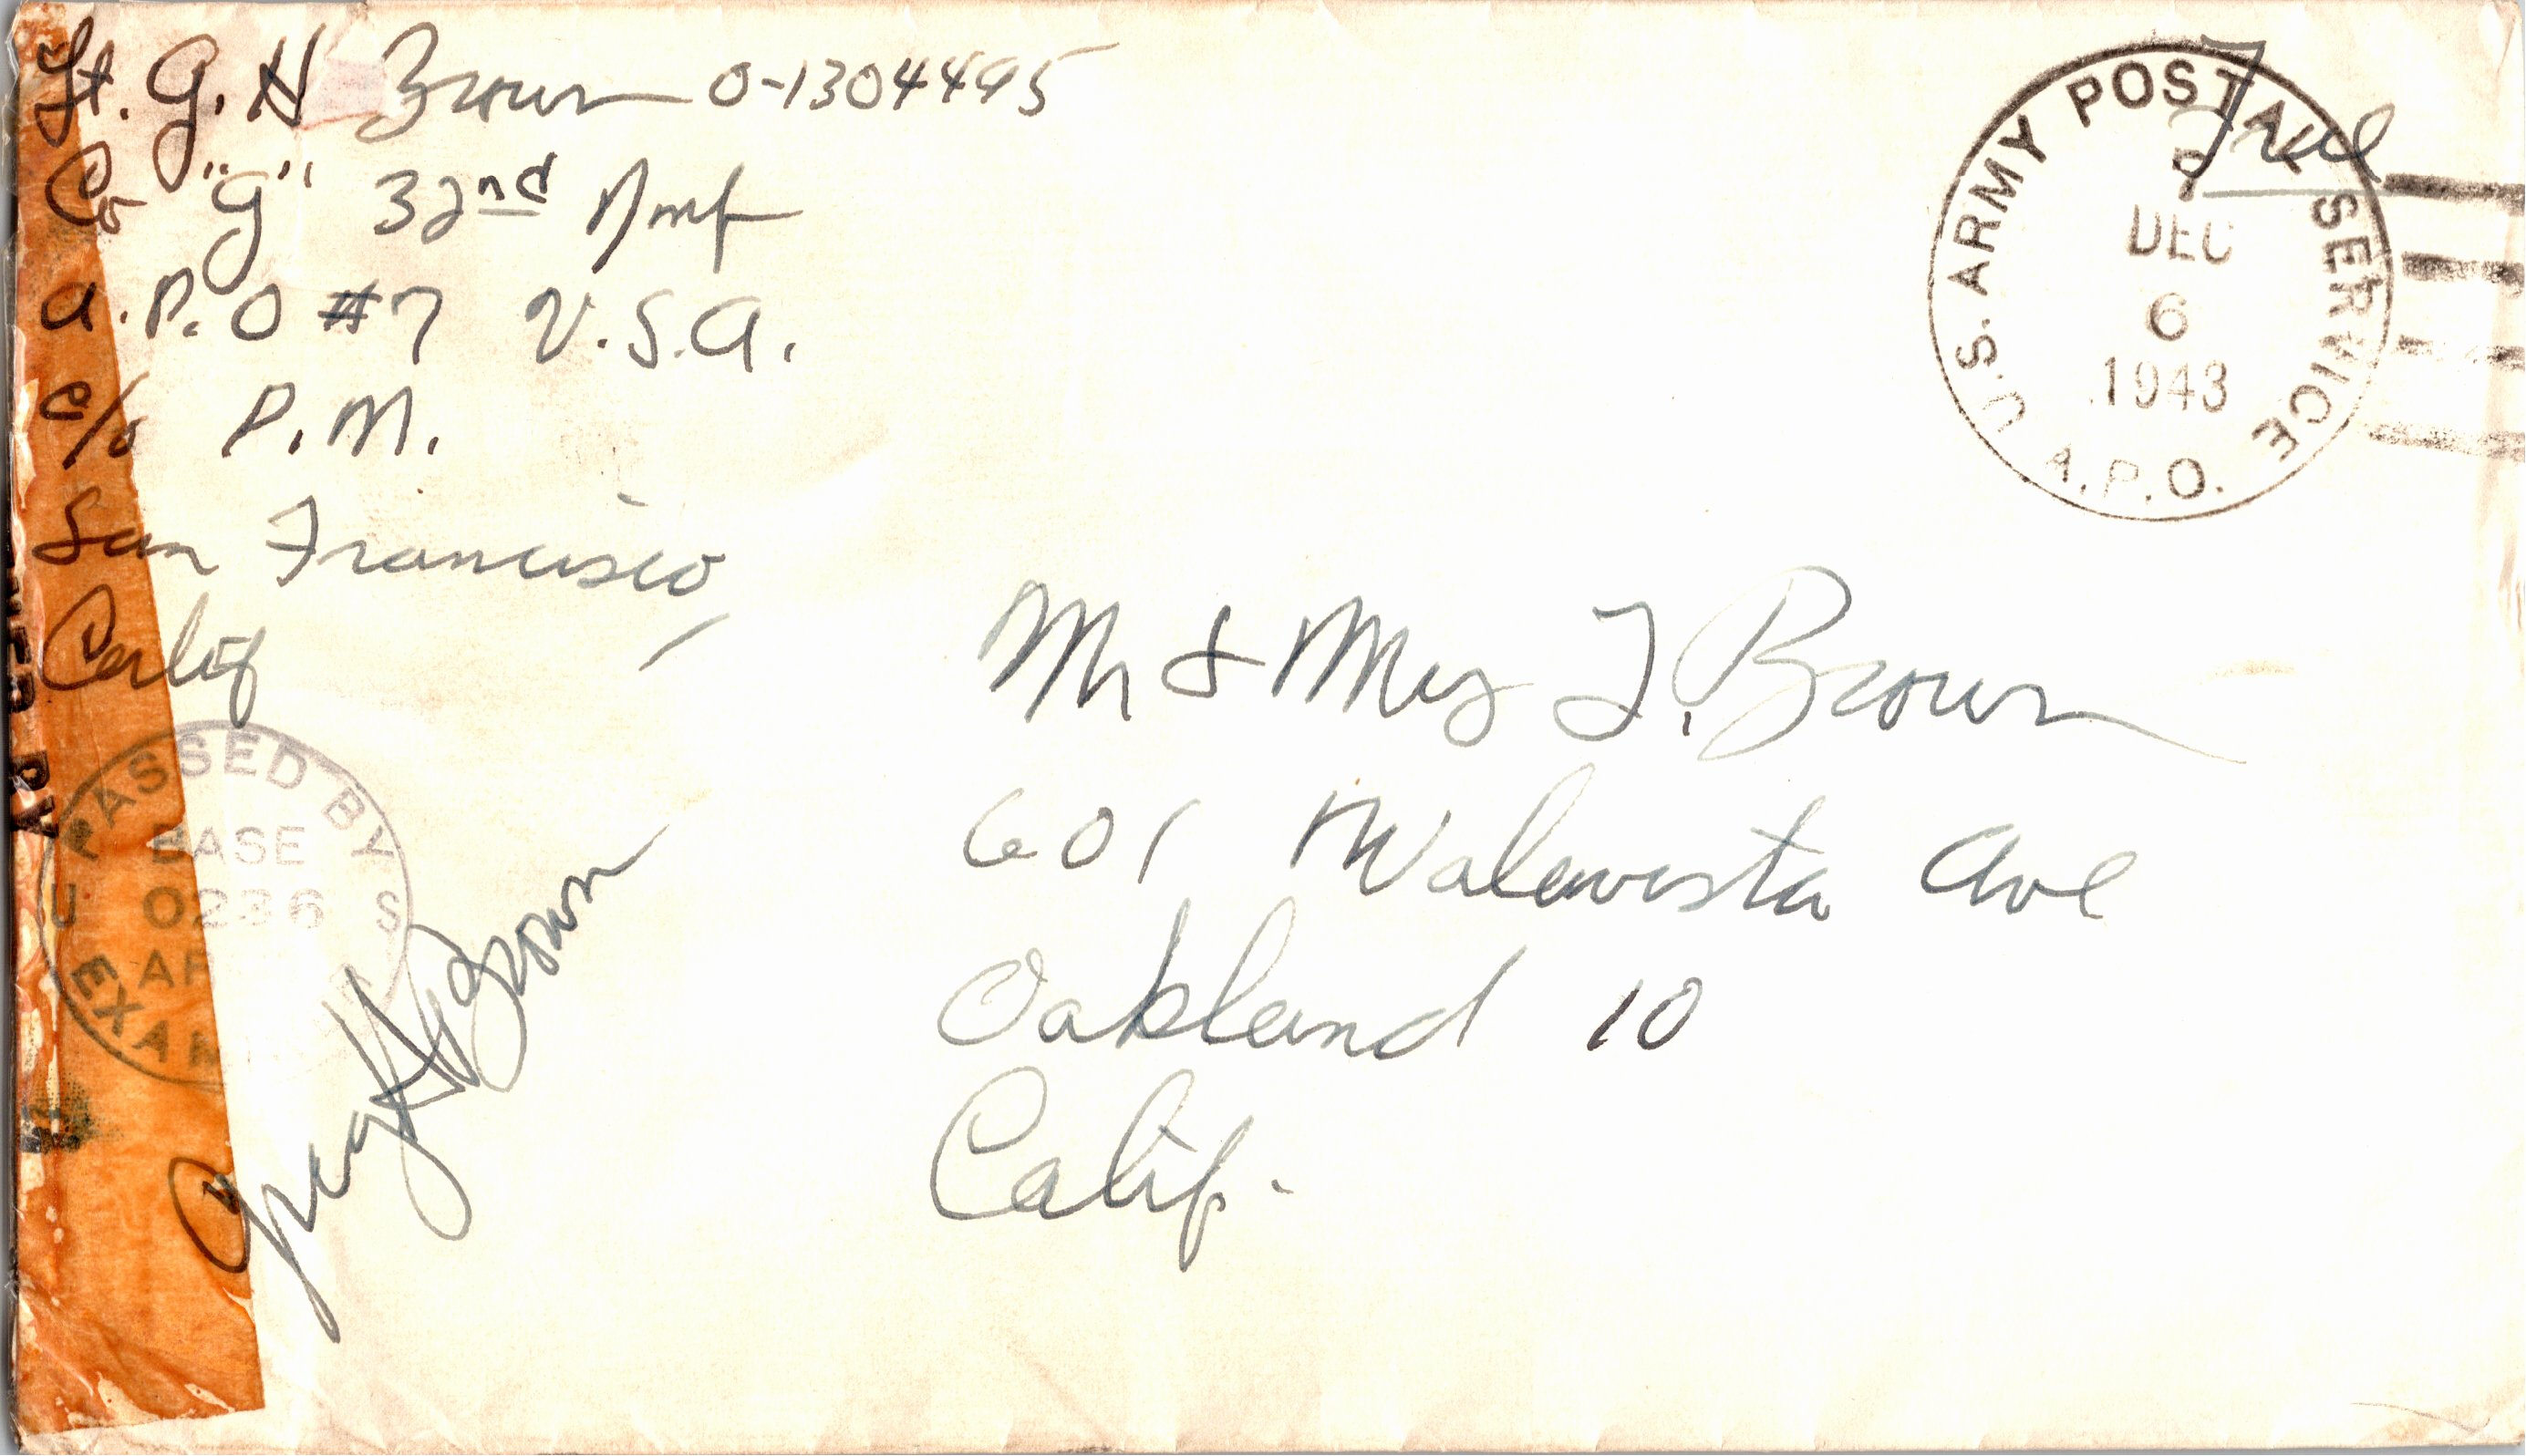 Lt. G. H Brown O-1304495
Co "G" 32nd Inf
A.P.O #7 U.S.A.
c/o P.M.
San Francisco,
Calif
Free
U.S. ARMY POSTAL SERVICE
A.P.O.
DEC
6
1943
Mr & Mrs J. Brown
601 Walavista Ave
Oakland 10
Calif.
PASSED BY
BASE
U 0236 S
ED BY
H. Brown